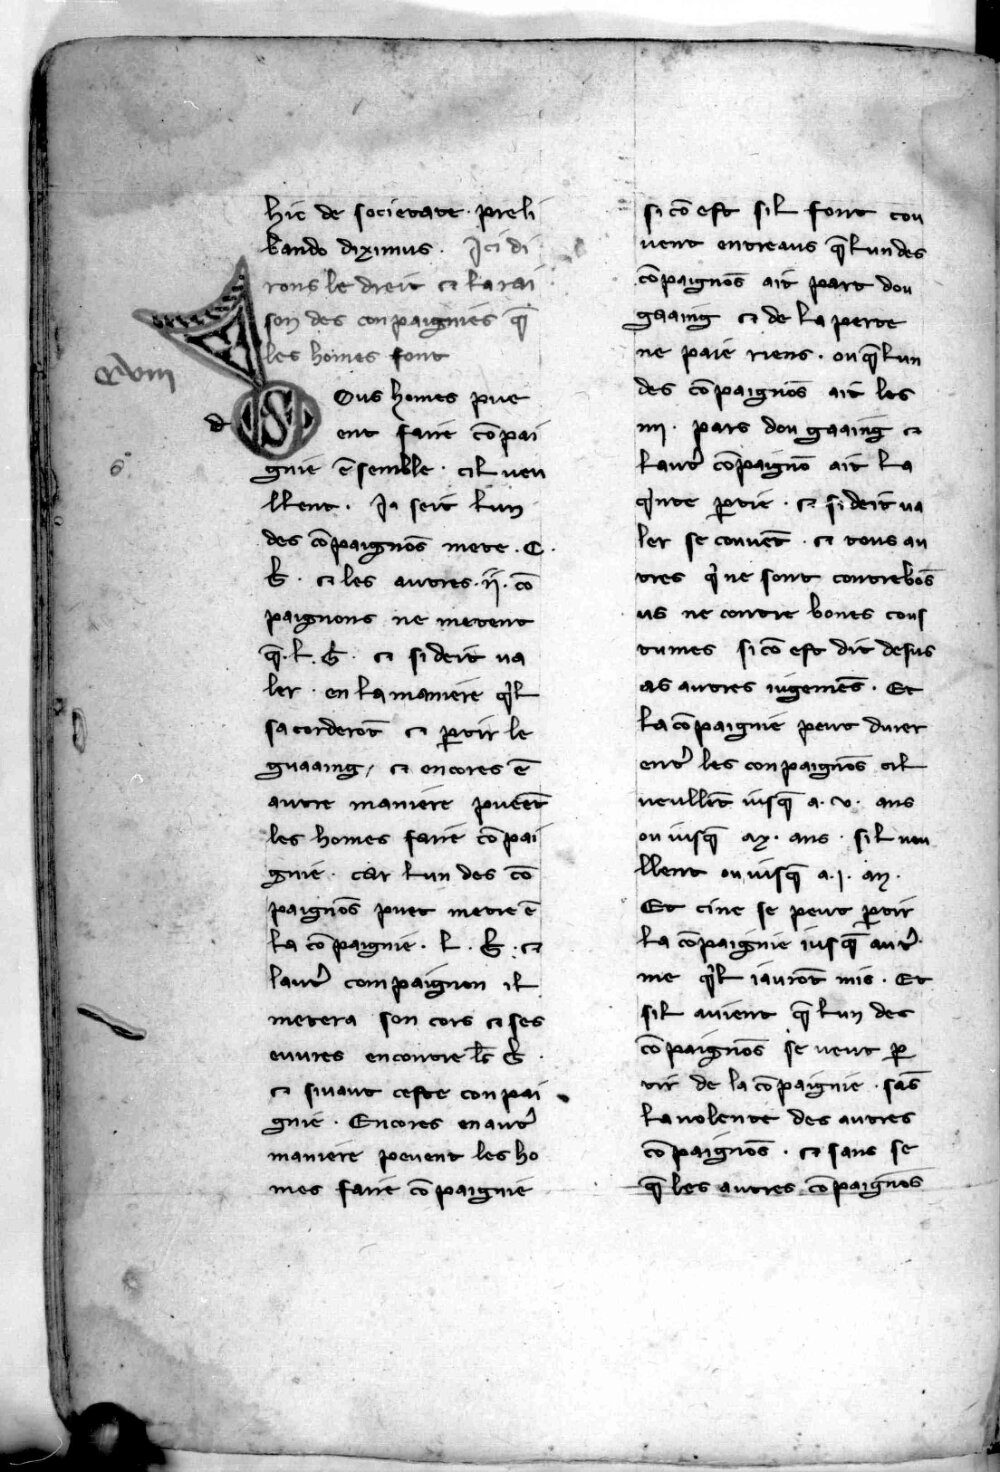 hic de societate · preli
bando diximus · Ici di
rons le dreit ⁊ la rai
son des conpaignies q̄
les homes font
cxviii
d
Ous homes pue
ent faire cōpai
gnie ēsemble · cil veu
llent · Ja seit lun
des cōpaignōs mete · C ·
b̄ · ⁊ les autres · ii · cō
paignons ne metent
q̄ · L · b̄ · ⁊ si deit va
ler · en la maniere qͥl
sacorderōt ⁊ ꝑtir le
guaaing / ⁊ encores ē
autre maniere pueēt
les homes faire cōpai
gnie · car lun des cō
paignōs puet metre ē
la cōpaignie · L · b̄ · ⁊
laut̾ compaignon il
metera son cors ⁊ ses
euvres encontre les b̄ ·
⁊ sivaut ceste conpai
gnie · Encores en aut̾
maniere pevent les ho
mes faire cōpaignie
si cō est sil font cou
vent entreaus q̄ lun des
cōpaignōs ait part dou
gaaing ⁊ de la perte
ne paie riens · ou q̄ lun
des cōpaignōs ait les
iiii · pars dou gaaing ⁊
laut̾ cōpaignō ait la
qͥnte ꝑtie · ⁊ si deit va
ler se convēt · ⁊ tous au
tres qͥ ne sont contre bōs
us ne contre bones cous
tumes si cō est dit desus
as autres iugemēs · Et
la cōpaignie peut durer
ent̾ les conpaignōs cil
veullēt iusq̄ a · v · ans
ou iusq̄ a x · ans · sil veu
llent ou iusq̄ a · j · an ·
Et cine se peut ꝑtir
la cōpaignie iusq̄ au t̾
me qͥl i avrōt mis · Et
sil avient q̄ lun des
cōpaignōs se veut ꝑ
tir de la cōpaignie · sās
la volente des autres
cōpaignōs · ⁊ sans se
q̄ les autres cōpaignōs